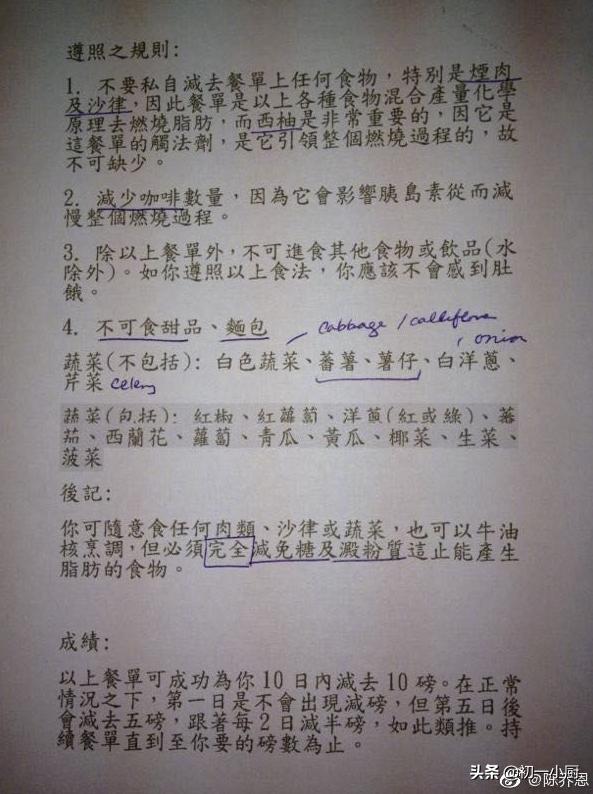 遵照之規則:
1. 不要私自減去餐單上任何食物，特別是煙肉
及沙律，因此餐單是以上各種食物混合產量化學
原理去燃燒脂肪，而西柚是非常重要的，因它是
這餐單的觸法劑，是它引領整個燃燒過程的，故
不可缺少。
2. 減少咖啡數量，因為它會影響胰島素從而減
慢整個燃燒過程。
3. 除以上餐單外，不可進食其他食物或飲品(水
除外)。如你遵照以上食法，你應該不會感到肚
餓。
cabbage / calliflora
4. 不可食甜品、麵包
, onion
蔬菜(不包括): 白色蔬菜、蕃薯、薯仔、白洋蔥、
芹菜 celery
蔬菜(包括): 紅椒、紅蘿蔔、洋蔥(紅或綠)、蕃
茄、西蘭花、蘿蔔、青瓜、黃瓜、椰菜、生菜、
菠菜
後記:
你可隨意食任何肉類、沙律或蔬菜，也可以牛油
核烹調，但必須完全減免糖及澱粉質這止能產生
脂肪的食物。
成績:
以上餐單可成功為你10日內減去10磅。在正常
情況之下，第一日是不會出現減磅，但第五日後
會減去五磅，跟著每2日減半磅，如此類推。持
續餐單直到至你要的磅數為止。
头条 @初一小厨
@陈乔恩